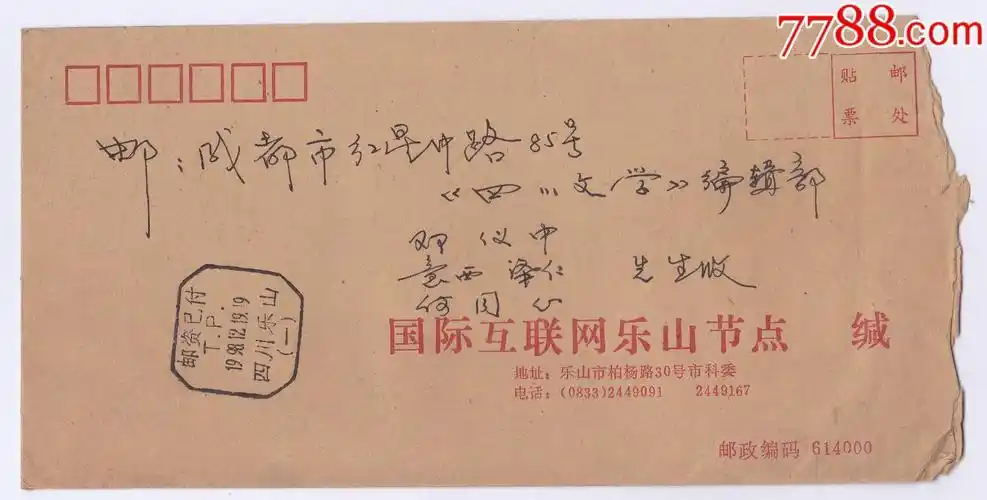 7788.com
贴 邮
票 处
邮：成都市红星中路85号
《四川文学》编辑部
邓仪中
意西泽仁 先生收
何同心
邮资已付
T.P.
1998.12.19.19
四川乐山
(一)
国际互联网乐山节点 缄
地址：乐山市柏杨路30号市科委
电话：(0833)2449091 2449167
邮政编码 614000